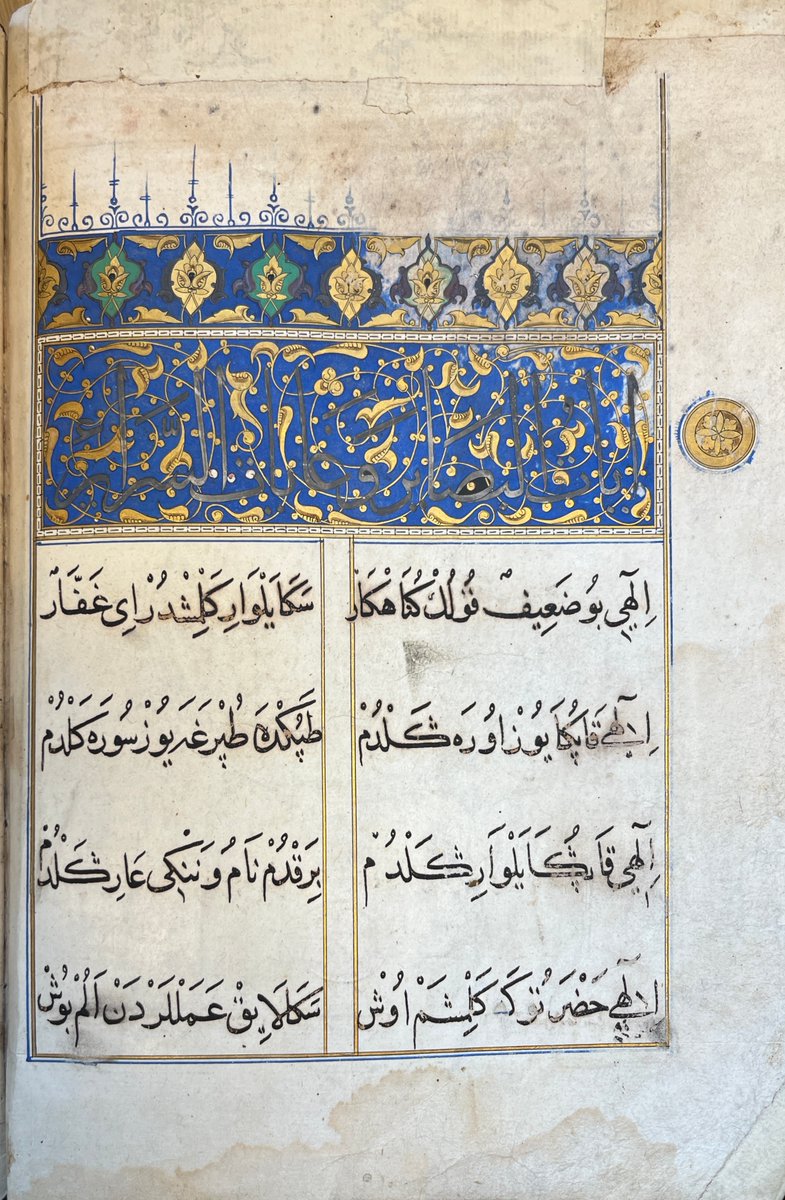 ايات البصاير وغايات السراير
اِلٰهِي بُو ضَعِيفْ قُولُكْ كُنَاهْكَارْ سَكَا يَلْوَارِ كَلْمِشْدُرْ اَىْ غَفَّارْ
اِلٰهِي قَاپُكَا يُوزْ اُورَه كَلْدُمْ طَپُكْدَه طُپْرَغَه يُوزْ سُورَه كَلْدُمْ
اِلٰهِي قَاپُكَا يَلْوَارِ كَلْدُمْ بِرَقْدُمْ نَامُ وَنَنْكِى عَارِ كَلْدُمْ
اِلٰهِي حَضْرَتُوكَه كَلْمِشَمْ اُوشْ سَكَا لَايِقْ عَمَلْلَرْدَنْ اَلُمْ بُوشْ